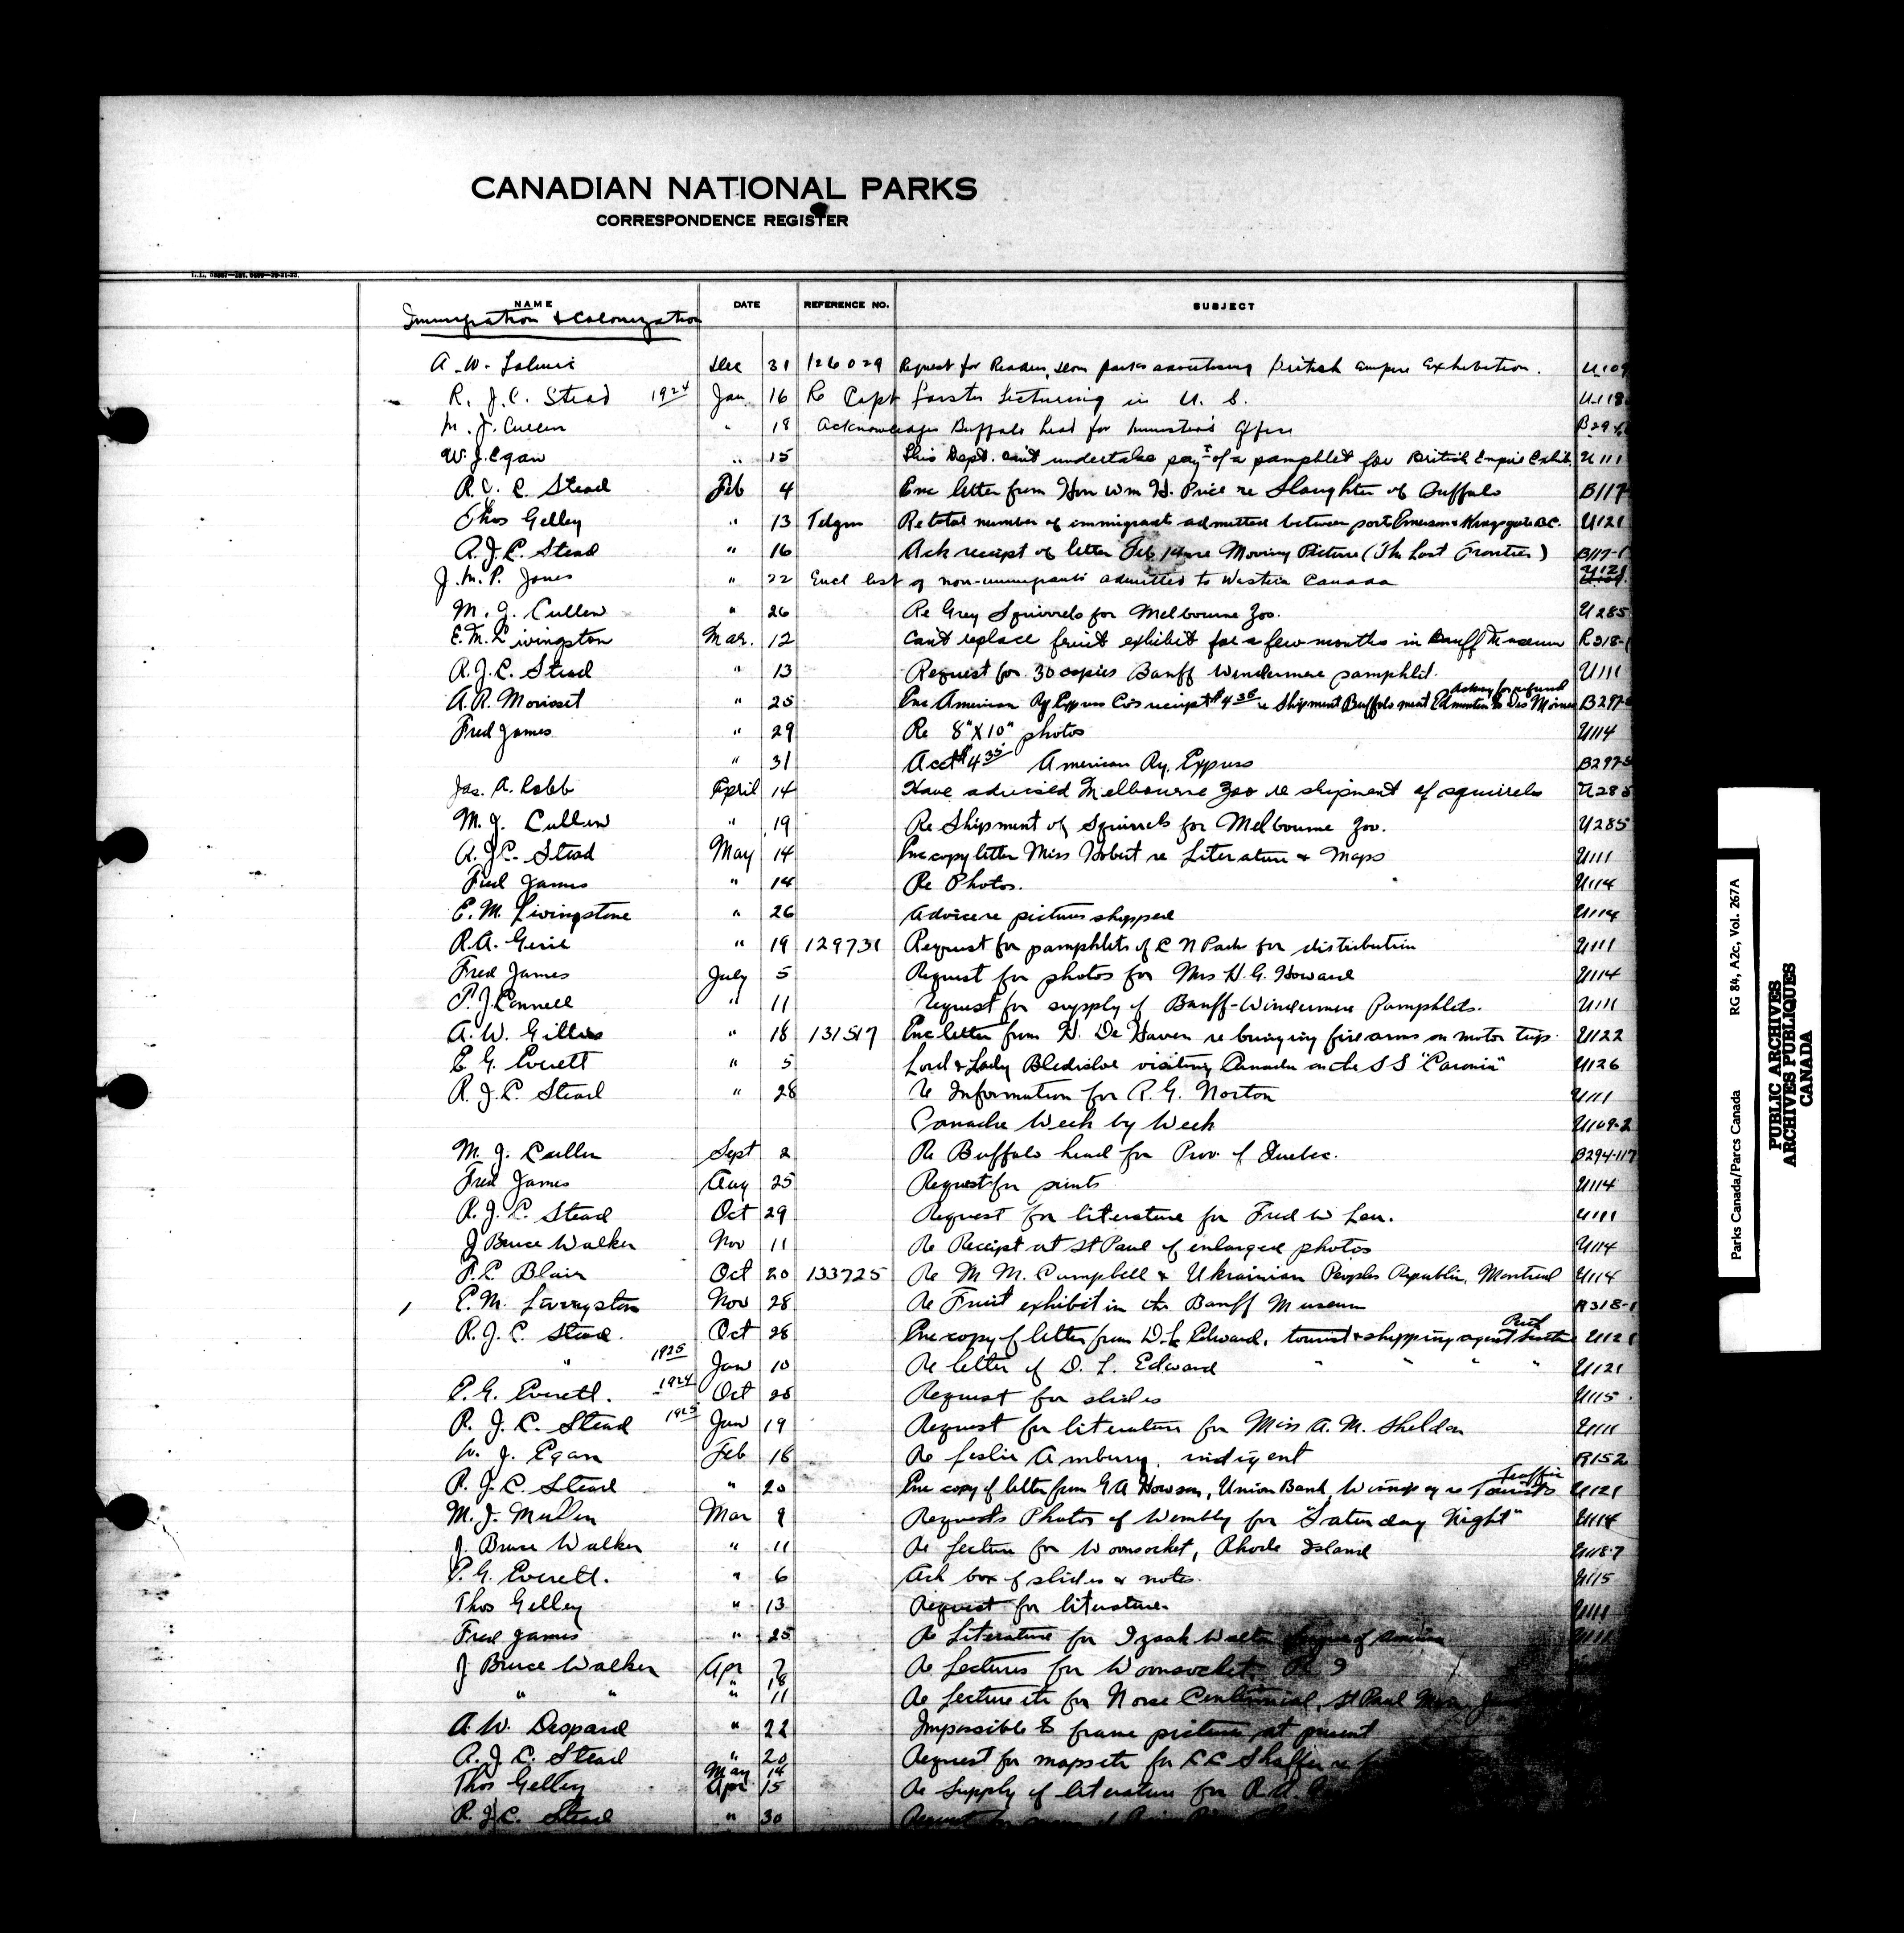 CANADIAN NATIONAL PARKS
CORRESPONDENCE REGISTER
NAME DATE REFERENCE NO. SUBJECT
Immigration & Colonization
A. W. Dec 31 126029 Request for parks advertising British Empire Exhibition. U109
R. J. C. Stead 1924 Jan 16 Re Capt lecturing in U. S. U118
M. J. Cullen " 18 Acknowledges Buffalo head for Minister's Office B294
W. J. Egan " 15 This Dept. can't undertake pay't of a pamphlet for British Empire Exhib. U111
R. J. C. Stead Feb 4 Enc letter from Hon Wm H. Price re Slaughter of Buffalo B117
Thos Gelley " 13 Telgm Re total number of immigrants admitted between port Emerson & Kingsgate B.C. U121
R. J. C. Stead " 16 Ack receipt of letter Feb 14 re Moving Picture (The Lost Frontier) B117-1
J. M. P. Jones " 22 Encl list of non-immigrants admitted to Western Canada U121
M. J. Cullen " 26 Re Grey Squirrels for Melbourne Zoo. U285
E. M. Livingston Mar. 12 Can't replace fruit exhibit for a few months in Banff Museum R318-1
R. J. C. Stead " 13 Request for 30 copies Banff Windermere pamphlet. U111
A. R. Morisset " 25 Enc American Ry Express Co's receipt $4.35 re Shipment Buffalo meat Edmonton to Des Moines asking for refund B297-
Fred James " 29 Re 8" X 10" photos U114
" 31 Acct $4.35 American Ry. Express B297-5
Jas. A. Robb April 14 Have advised Melbourne Zoo re shipment of squirrels U285
M. J. Cullen " 19 Re Shipment of Squirrels for Melbourne Zoo. U285
R. J. C. Stead May 14 Enc copy letter Miss Hobert re Literature & Maps U111
Fred James " 14 Re Photos. U114
E. M. Livingstone " 26 Advice re pictures shipped U114
R. A. " 19 129731 Request for pamphlets of C N Parks for distribution U111
Fred James July 5 Request for photos for Mrs H. G. Howard U114
P. J. Connell " 11 Request for supply of Banff-Windermere Pamphlets. U111
A. W. Gillies " 18 131517 Enc letter from H. De Haven re bringing firearms on motor trip. U122
E. G. Everett " 5 Lord & Lady Bledisloe visiting Canada on the S S "Caronia" U126
R. J. C. Stead " 28 Re Information for R. G. Norton U111
Canada Week by Week U109-2
M. J. Cullen Sept 2 Re Buffalo head for Prov. of Quebec. B294-117
Fred James Aug 25 Request for prints U114
R. J. C. Stead Oct 29 Request for literature for Fred W Lee. U111
J Bruce Walker Nov 11 Re Receipt at St Paul of enlarged photos U114
F. C. Blair Oct 20 133725 Re M M. Campbell & Ukrainian Peoples Republic, Montreal U114
E. M. Livingston Nov 28 Re Fruit exhibit in the Banff Museum R318-1
R. J. C. Stead. Oct 28 Enc copy of letter from D. L. Edward, tourist & shipping agent U121
" 1925 Jan 10 Re letter of D. L. Edward " " " " U121
E. G. Everett. 1924 Oct 28 Request for slides U115
R. J. C. Stead 1925 Jan 19 Request for literature for Miss A. M. Sheldon U111
W. J. Egan Feb 18 Re Leslie Ambury, indigent R152
R. J. C. Stead " 20 Enc copy of letter from G A Howson, Union Bank, Winnipeg re Tourists Traffic U121
M. J. Mullen Mar 9 Requests Photos of Wembly for "Saturday Night" U114
J. Bruce Walker " 11 Re Lecture for Woonsocket, Rhode Island U118-7
E. G. Everett. " 6 Ack box of slides & notes. U115
Thos Gelley " 13 Request for literature. U111
Fred James " 25 Re Literature for Izaak Walton League of America U111
J Bruce Walker Apr 7 Re Lectures for Woonsocket, R I
" " " 18 11 Re Lecture etc for Norse Centennial, St Paul Minn
A. W. Despard " 22 Impossible to frame picture at present
R. J. C. Stead " 20 Request for maps etc for C C Shaffer re
Thos Gelley May 14 Apr 15 Re Supply of literature for R. A.
R. J. C. Stead " 30 Request
Parks Canada/Parcs Canada RG 84, A2c, Vol. 267A
PUBLIC ARCHIVES
ARCHIVES PUBLIQUES
CANADA